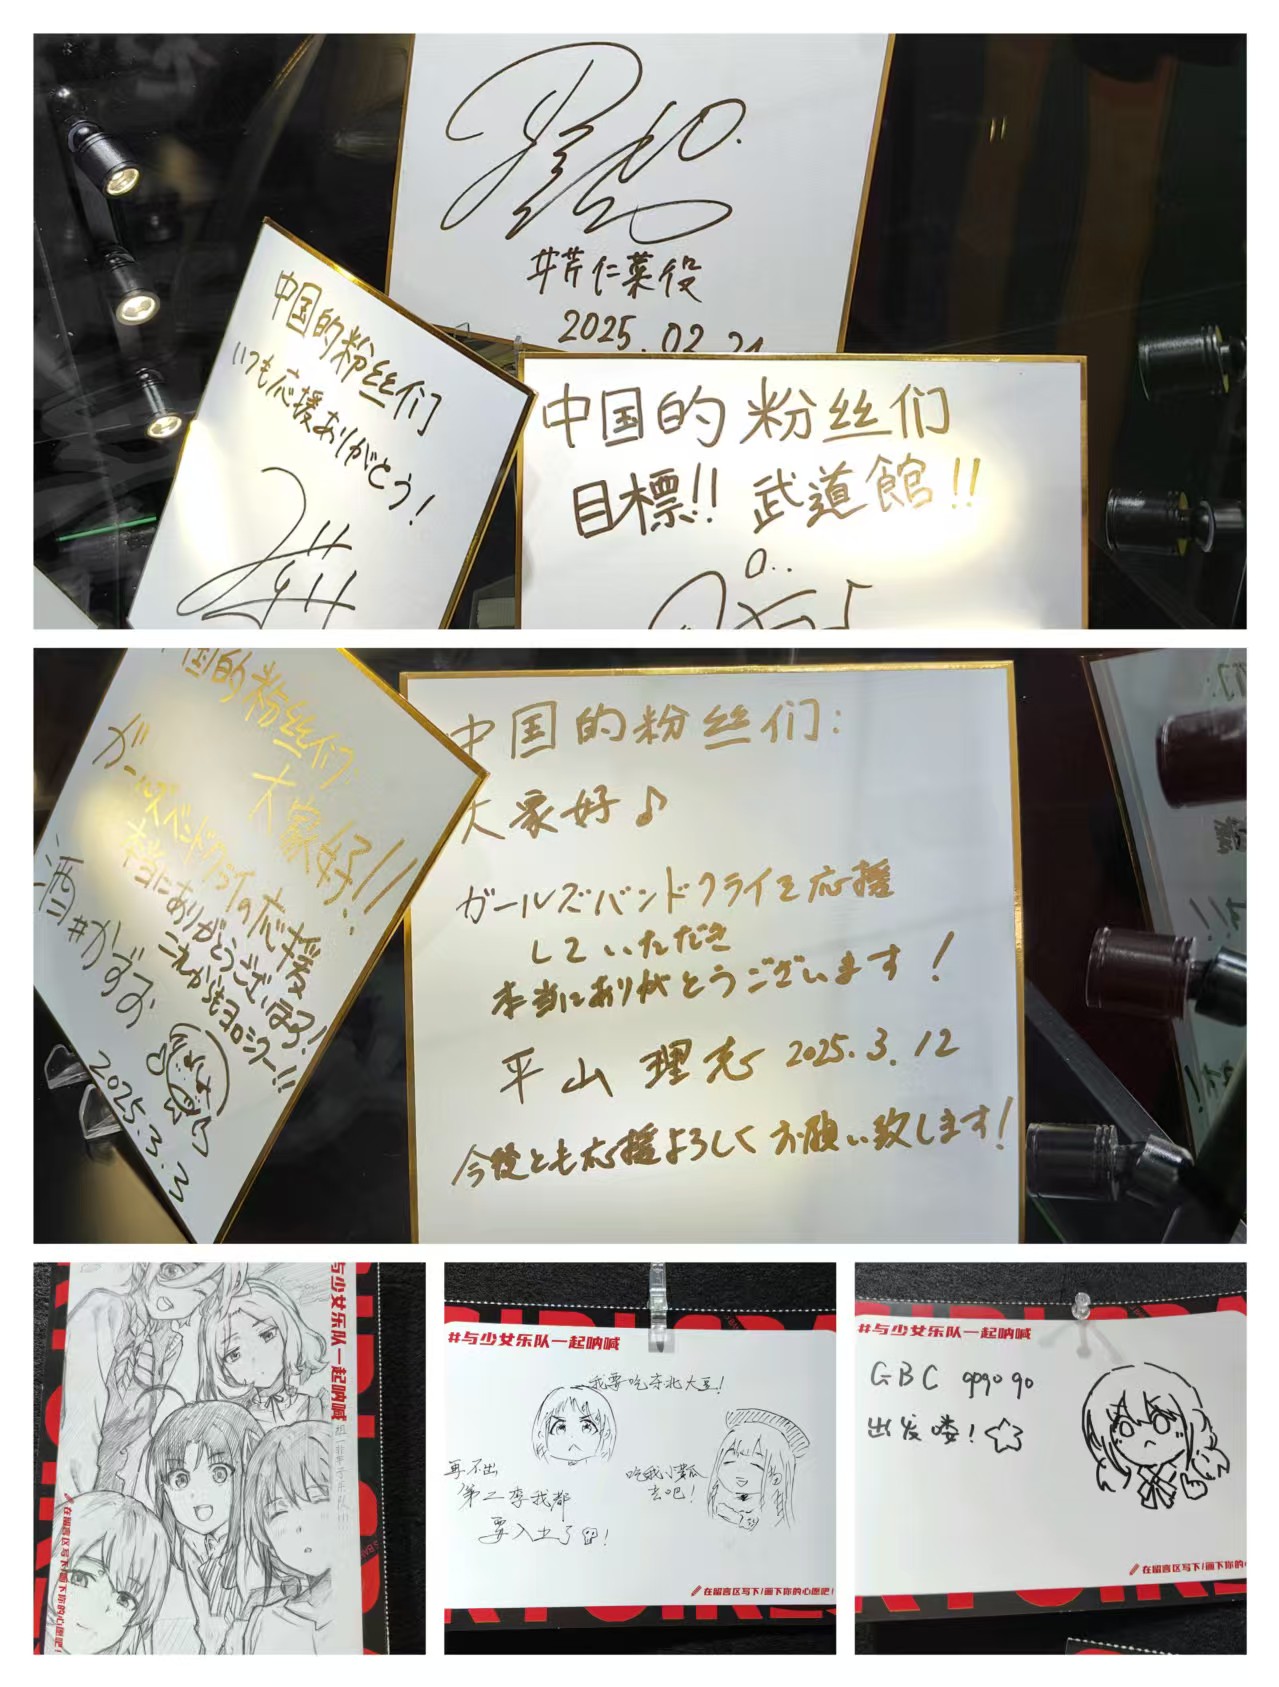 井芹仁菜役
2025.02.21
中国的粉丝们
いつも応援ありがとう!
中国的粉丝们
目標!! 武道館!!
国的粉丝们:
大家好!!
ガールズバンドクライの応援
本当にありがとうございまーす!
これからもヨロシクー!!
酒井かずお
2025.3.3
中国的粉丝们:
大家好♪
ガールズバンドクライを応援
していただき
本当にありがとうございます!
平山理志 2025.3.12
今後とも応援よろしくお願い致します!
与少女乐队一起呐喊
在留言区写下/画下你的心愿吧!
#与少女乐队一起呐喊
我要吃东北大豆!
再不出
第二季我都
要入土了!
吃我小黄瓜
去吧!
在留言区写下/画下你的心愿吧!
#与少女乐队一起呐喊
GBC gogogo
出发喽!
在留言区写下/画下你的心愿